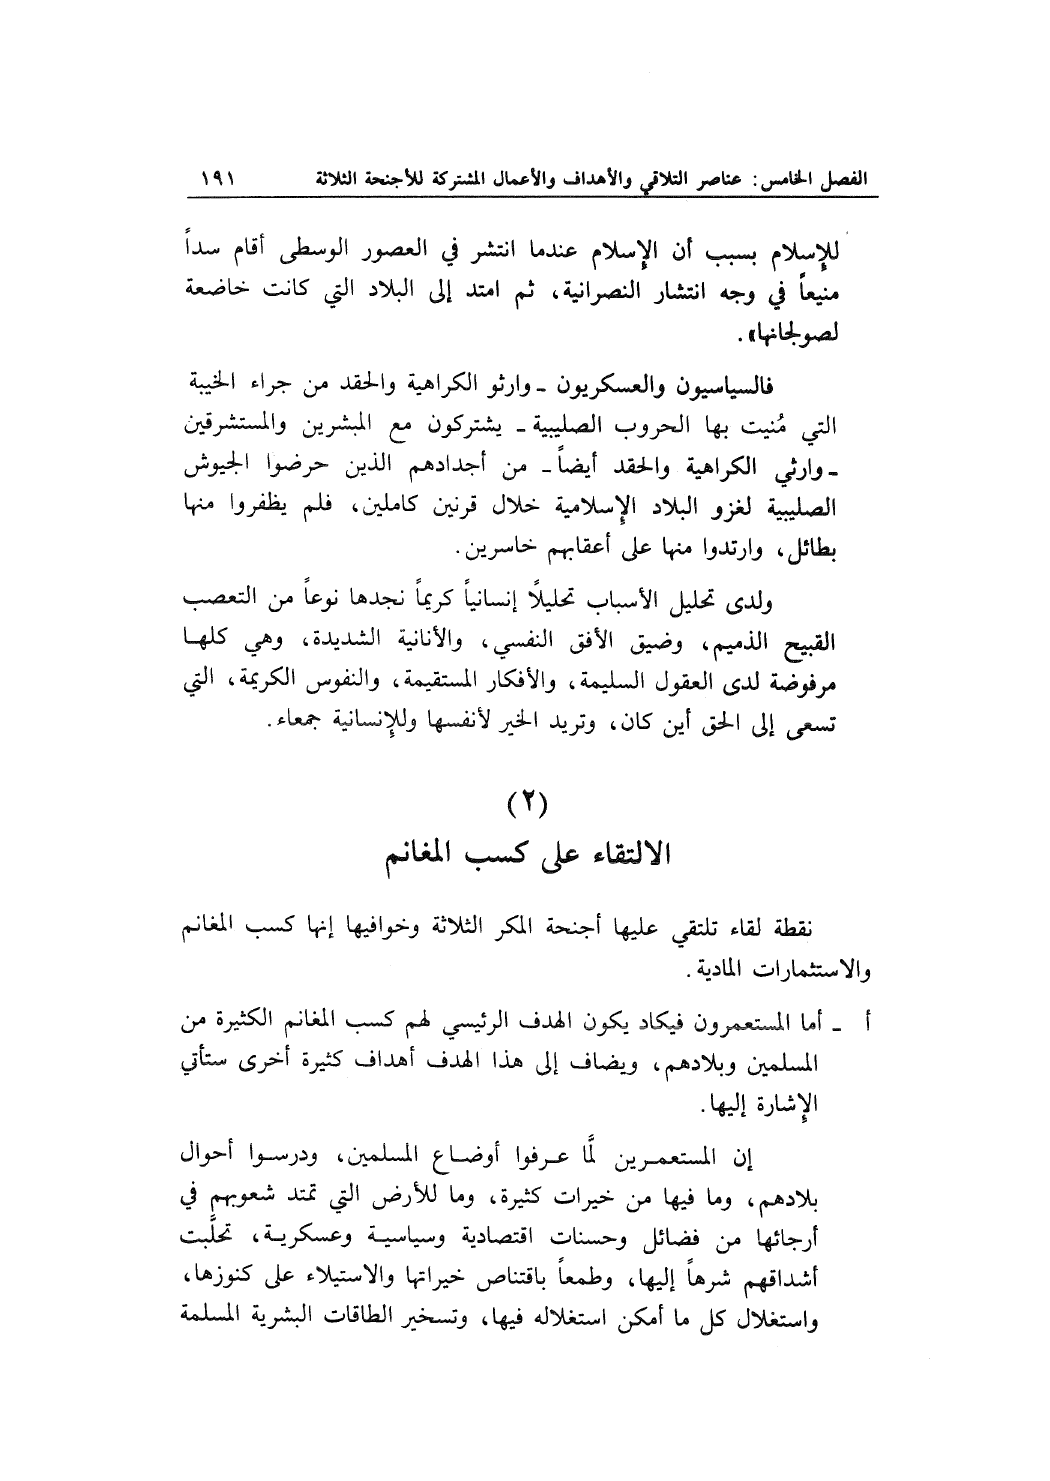 الفصل الخامس: عناصر التلاقي والأهداف والأعمال المشتركة للأجنحة الثلاثة ١٩١
للإسلام بسبب أن الإسلام عندما انتشر في العصور الوسطى أقام سداً
منيعاً في وجه انتشار النصرانية، ثم امتد إلى البلاد التي كانت خاضعة
لصولجانها».
فالسياسيون والعسكريون ـ وارثو الكراهية والحقد من جراء الخيبة
التي مُنيت بها الحروب الصليبية ـ يشتركون مع المبشرين والمستشرقين
ـ وارثي الكراهية والحقد أيضاً ـ من أجدادهم الذين حرضوا الجيوش
الصليبية لغزو البلاد الإسلامية خلال قرنين كاملين، فلم يظفروا منها
بطائل، وارتدوا منها على أعقابهم خاسرين.
ولدى تحليل الأسباب تحليلًا إنسانياً كريماً نجدها نوعاً من التعصب
القبيح الذميم، وضيق الأفق النفسي، والأنانية الشديدة، وهي كلها
مرفوضة لدى العقول السليمة، والأفكار المستقيمة، والنفوس الكريمة، التي
تسعى إلى الحق أين كان، وتريد الخير لأنفسها وللإنسانية جمعاء.
(٢)
الالتقاء على كسب المغانم
نقطة لقاء تلتقي عليها أجنحة المكر الثلاثة وخوافيها إنها كسب المغانم
والاستثمارات المادية.
أ ـ أما المستعمرون فيكاد يكون الهدف الرئيسي لهم كسب المغانم الكثيرة من
المسلمين وبلادهم، ويضاف إلى هذا الهدف أهداف كثيرة أخرى ستأتي
الإشارة إليها.
إن المستعمرين لمَّا عرفوا أوضاع المسلمين، ودرسوا أحوال
بلادهم، وما فيها من خيرات كثيرة، وما للأرض التي تمتد شعوبهم في
أرجائها من فضائل وحسنات اقتصادية وسياسية وعسكرية، تحلَّبت
أشداقهم شرهاً إليها، وطمعاً باقتناص خيراتها والاستيلاء على كنوزها،
واستغلال كل ما أمكن استغلاله فيها، وتسخير الطاقات البشرية المسلمة